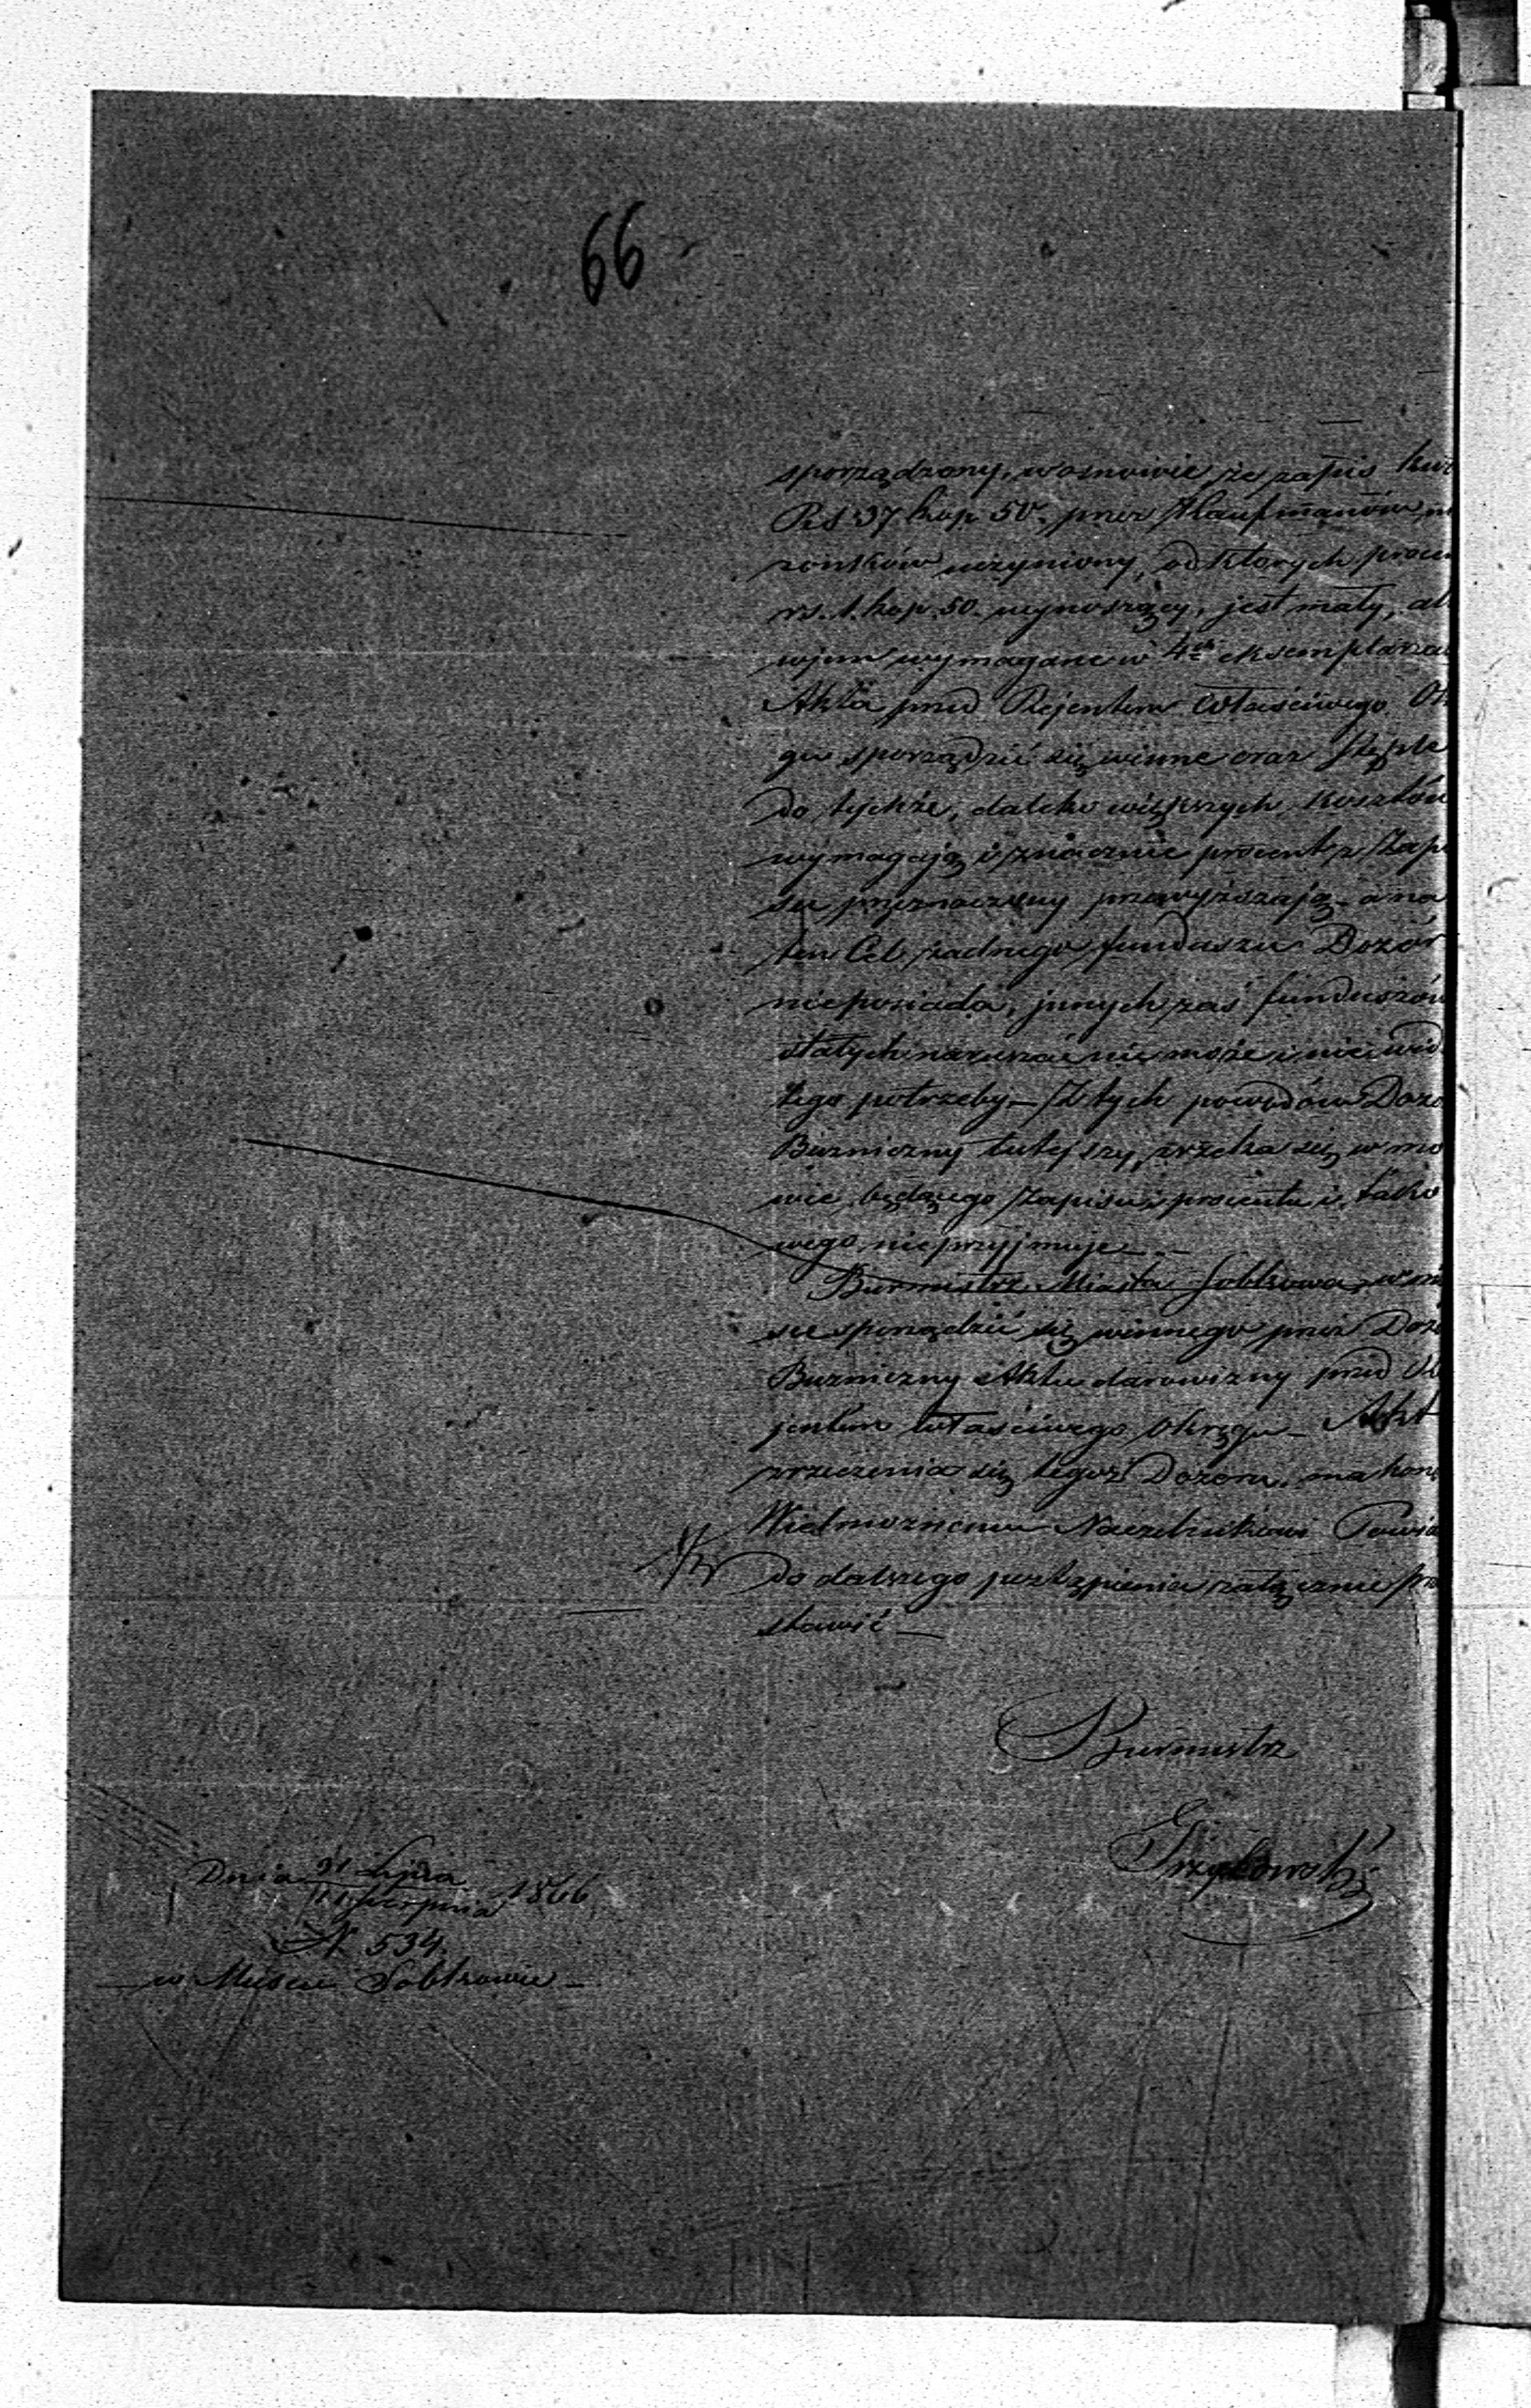 66
sporządzony, w osnowie, że zapis
Rs 37 kop. 50. przez Kaufmanów
żonków uczyniony, od których
rs. 1. kop. 50. wynoszący, jest mały,
wymagane w 4ch
Akta przed Rejentem właściwego
gu sporządzić się winne oraz stęple
do tychże, daleko większych kosztów
wymagają i znacznie procent z Zapi
su przeznaczony przewyższają - a na
ten Cel żadnego funduszu Dozór
nieposiada, jnnych zaś funduszów
stałych naruszać nie może i nie
tego potrzeby - Z tych powodów
Bożniczny tutejszy, zrzeka się w mo
wie będącego Zapisu i procentu i tako
wego nieprzyjmuje -
Burmistrz Miasta Sobkowa,
sce sporządzić się winnego przez
Bożniczny Aktu darowizny przed
jentem właściwego Okręgu - Akt
zrzeczenia się tegoż Dozoru, ma
Wielmożnemu Naczelnikowi
do dalszego postąpienia załącznie
stawić -
Burmistrz
Dnia 31 Lipca
11 Sierpnia 1866
N. 534.
- w Mieście Sobkowie -